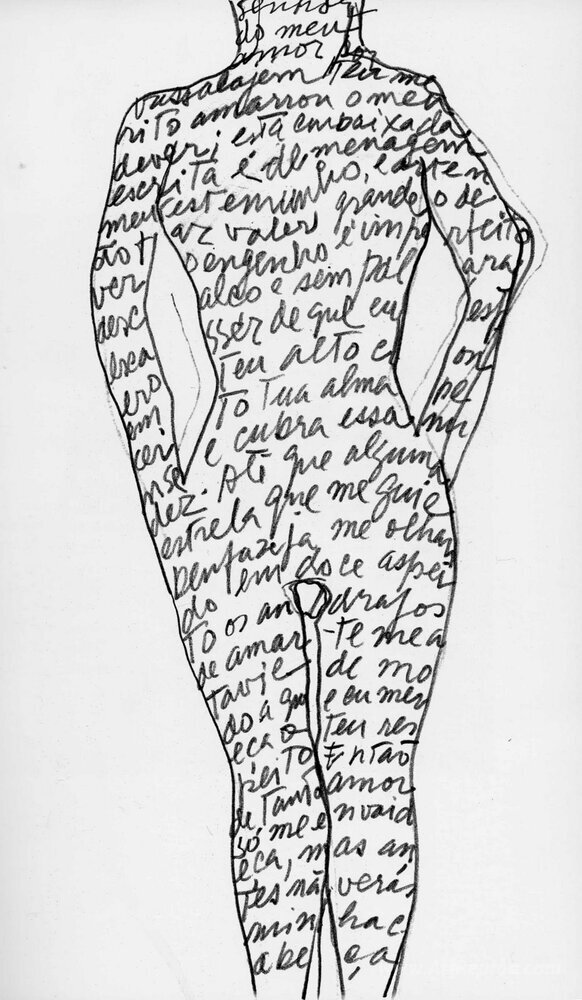 senhor
do meu
amor por
vassalagem Teu mé
rito amarrou o meu
dever; esta embaixada
escrita é de menagem
meu testemunho, e arte n
ão t az valer grande o de
ver engenho é impe rfeito
desc alço e sem pal ara
ssér de que eu esp
ero teu alto c on
em to tua alma pe
e cubra essa nu
dez. Até que alguma
estrela que me guie
benfazeja, me olhan
do em doce aspei
to os an drajos
de amar -te me a
tavie de mo
do a qu e eu mer
eça o teu res
peito Então
de tanto amor
só me e nvaid
eça, m as an
tes não verás
min ha c
abe ça